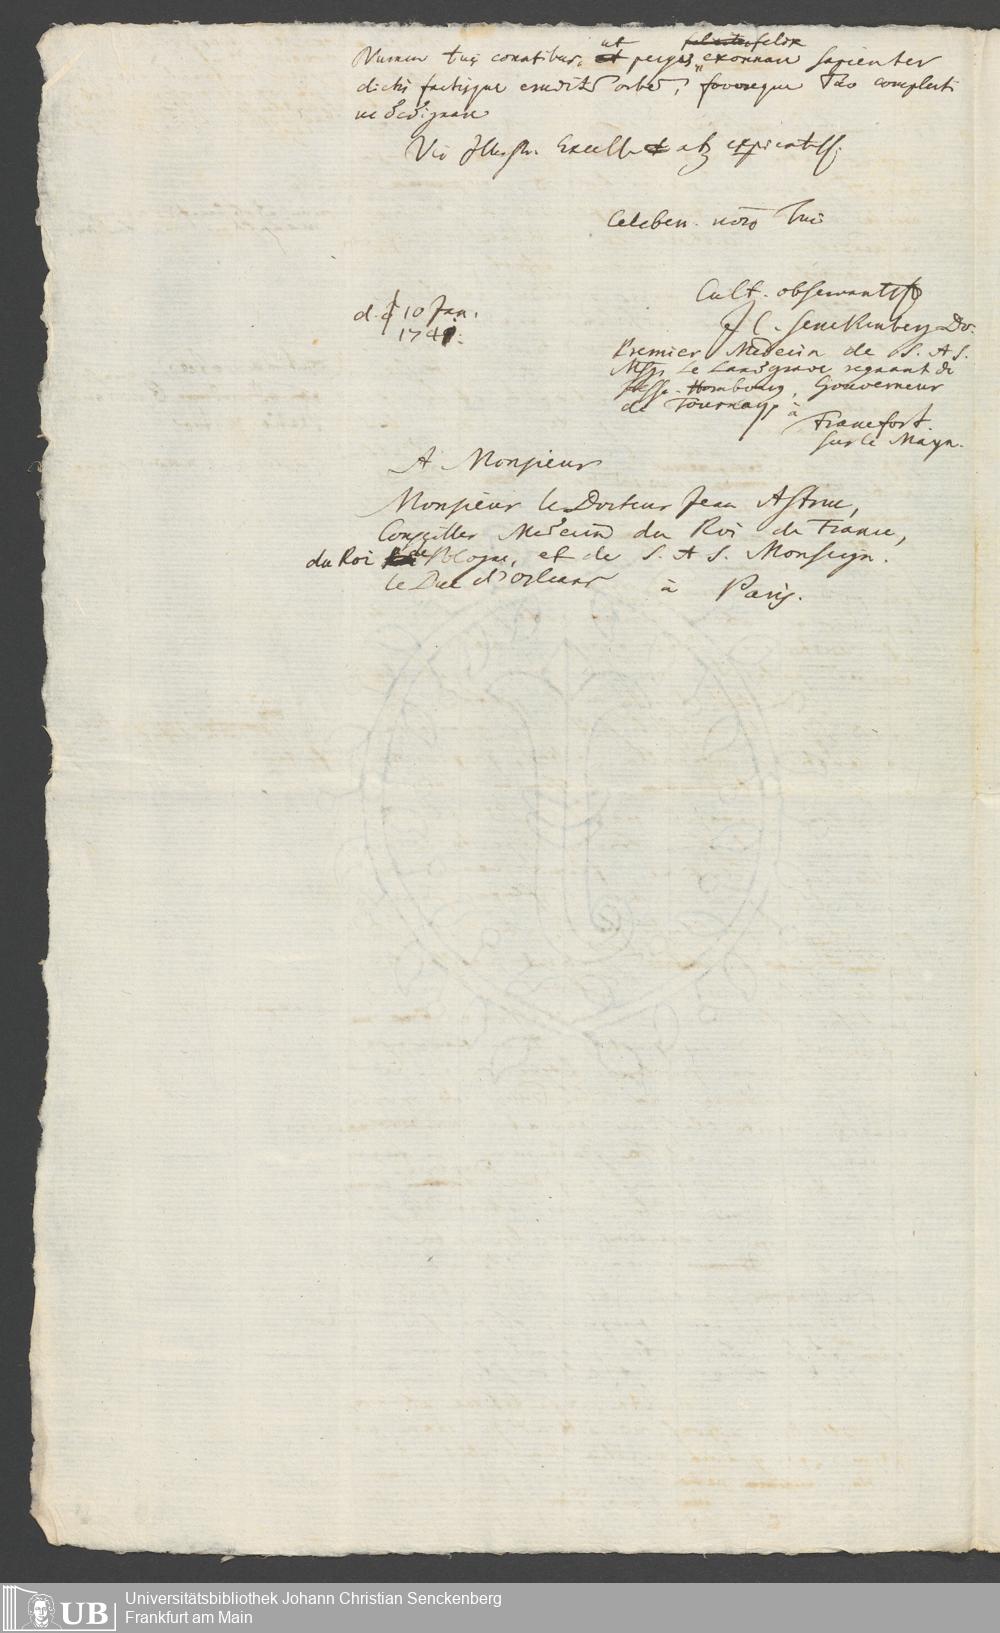 Numen tuis conatibus, ut pergas exornare sapienter
dictis factisque erudit orbē, favoreque Tuo complecti
me dedignare
Vir Illustr. Excell atq expientiss.
Celeben. nōis Tui
Cult. observantiss
d. 10 Jan.
1741.
J C. Senckenberg Dr.
Premier Medecin de S. A S.
Msgr Le Landgrave regnant de
Hesse-Hombourg, Gouverneur
de Tournay, à
Francfort.
sur le Mayn.
A Monsieur
Monsieur le Docteur Jean Astruc,
Conseiller Medecin du Roi de France,
du Roi de Pologne, et de S. A S. Monseign.
le Duc d'Orleans
à Paris.
UB
Universitätsbibliothek Johann Christian Senckenberg
Frankfurt am Main